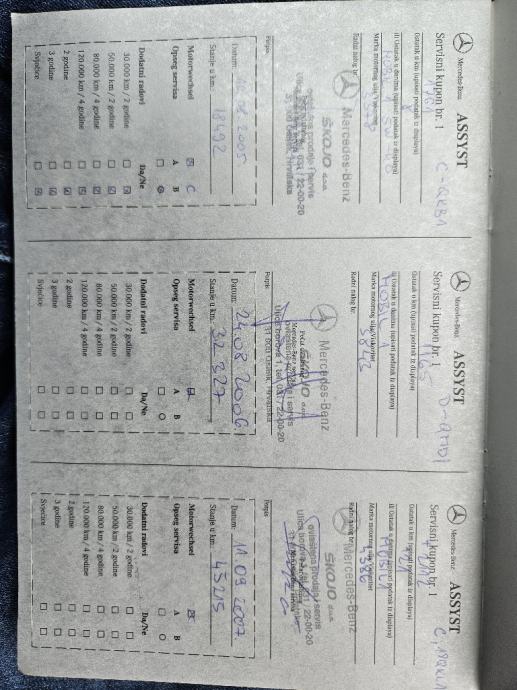 Mercedes-Benz
ASSYST
Servisni kupon br. 1
Ostatak u km (upisati podatak iz displaya)
1761
ili Ostatak u danima (upisati podatak iz displaya)
MOBIL 1
Marka motornog ulja/viskozitet
Radni nalog br.
Mercedes-Benz
ŠKOJO d.o.o.
ovlaštena prodaja i servis
031 / 22-00-20
Potpis
Datum:
08 2005
Stanje u km:
18492
Motorwechsel
C
Opseg servisa A B
Dodatni radovi Da/Ne
30.000 km / 2 godine
50.000 km / 2 godine
80.000 km / 4 godine
120.000 km / 4 godine
2 godine
3 godine
Svjećice
Mercedes-Benz
ASSYST
Servisni kupon br. 1
Ostatak u km (upisati podatak iz displaya)
1165
ili Ostatak u danima (upisati podatak iz displaya)
MOBIL 1
Marka motornog ulja/viskozitet
5843
Radni nalog br.
Mercedes-Benz
ŠKOJO d.o.o.
ovlaštena prodaja i servis
031 / 22-00-20
31 000 Osijek, Hrvatska
Potpis
Datum: 24.08 2006
Stanje u km: 32 327
Motorwechsel
Opseg servisa A B
Dodatni radovi Da/Ne
30.000 km / 2 godine
50.000 km / 2 godine
80.000 km / 4 godine
120.000 km / 4 godine
2 godine
3 godine
Svjećice
Mercedes-Benz
ASSYST
Servisni kupon br. 1
Ostatak u km (upisati podatak iz displaya)
ili Ostatak u danima (upisati podatak iz displaya)
MOBIL 1
Marka motornog ulja/viskozitet
4386
Radni nalog br.
Mercedes-Benz
ŠKOJO d.o.o.
ovlaštena prodaja i servis
031 / 22-00-20
Potpis
Datum: 11 09 2007
Stanje u km: 43215
Motorwechsel
Opseg servisa A B
Dodatni radovi Da/Ne
30.000 km / 2 godine
50.000 km / 2 godine
80.000 km / 4 godine
120.000 km / 4 godine
2 godine
3 godine
Svjećice